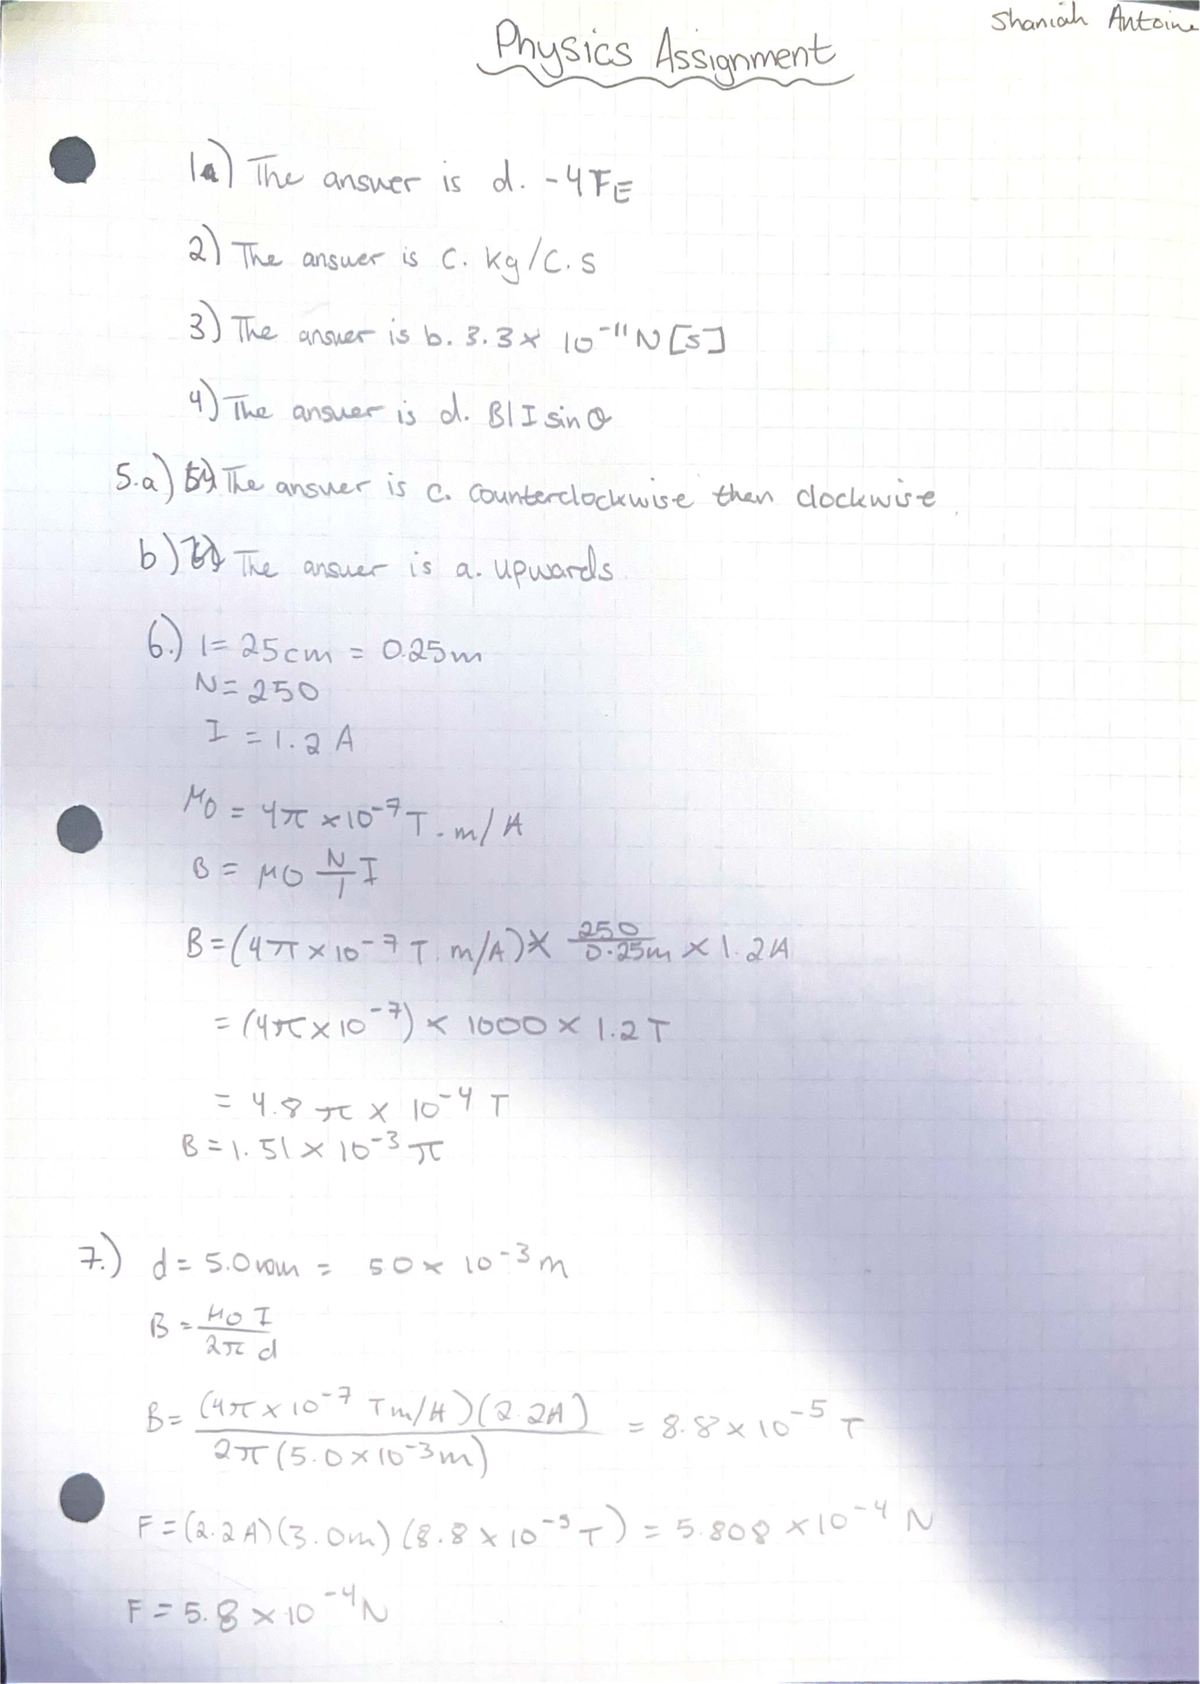 Shaniah Antoine
Physics Assignment
1a) The answer is d. -4FE
2) The answer is c. kg/C.s
3) The answer is b. 3.3 × 10⁻¹¹ N [S]
4) The answer is d. BlI sin θ
5.a) The answer is c. counterclockwise then clockwise.
b) The answer is a. upwards.
6.) l = 25cm = 0.25m
N = 250
I = 1.2 A
μ0 = 4π × 10⁻⁷ T.m/A
B = μ0 N/l I
B = (4π × 10⁻⁷ T.m/A) × 250/0.25m × 1.2A
= (4π × 10⁻⁷) × 1000 × 1.2 T
= 4.8 π × 10⁻⁴ T
B = 1.51 × 10⁻³ π
7.) d = 5.0mm = 50 × 10⁻³ m
B = μ0 I / 2π d
B = (4π × 10⁻⁷ Tm/A)(2.2A) / 2π (5.0 × 10⁻³m) = 8.8 × 10⁻⁵ T
F = (2.2A)(3.0m)(8.8 × 10⁻⁵ T) = 5.808 × 10⁻⁴ N
F = 5.8 × 10⁻⁴ N